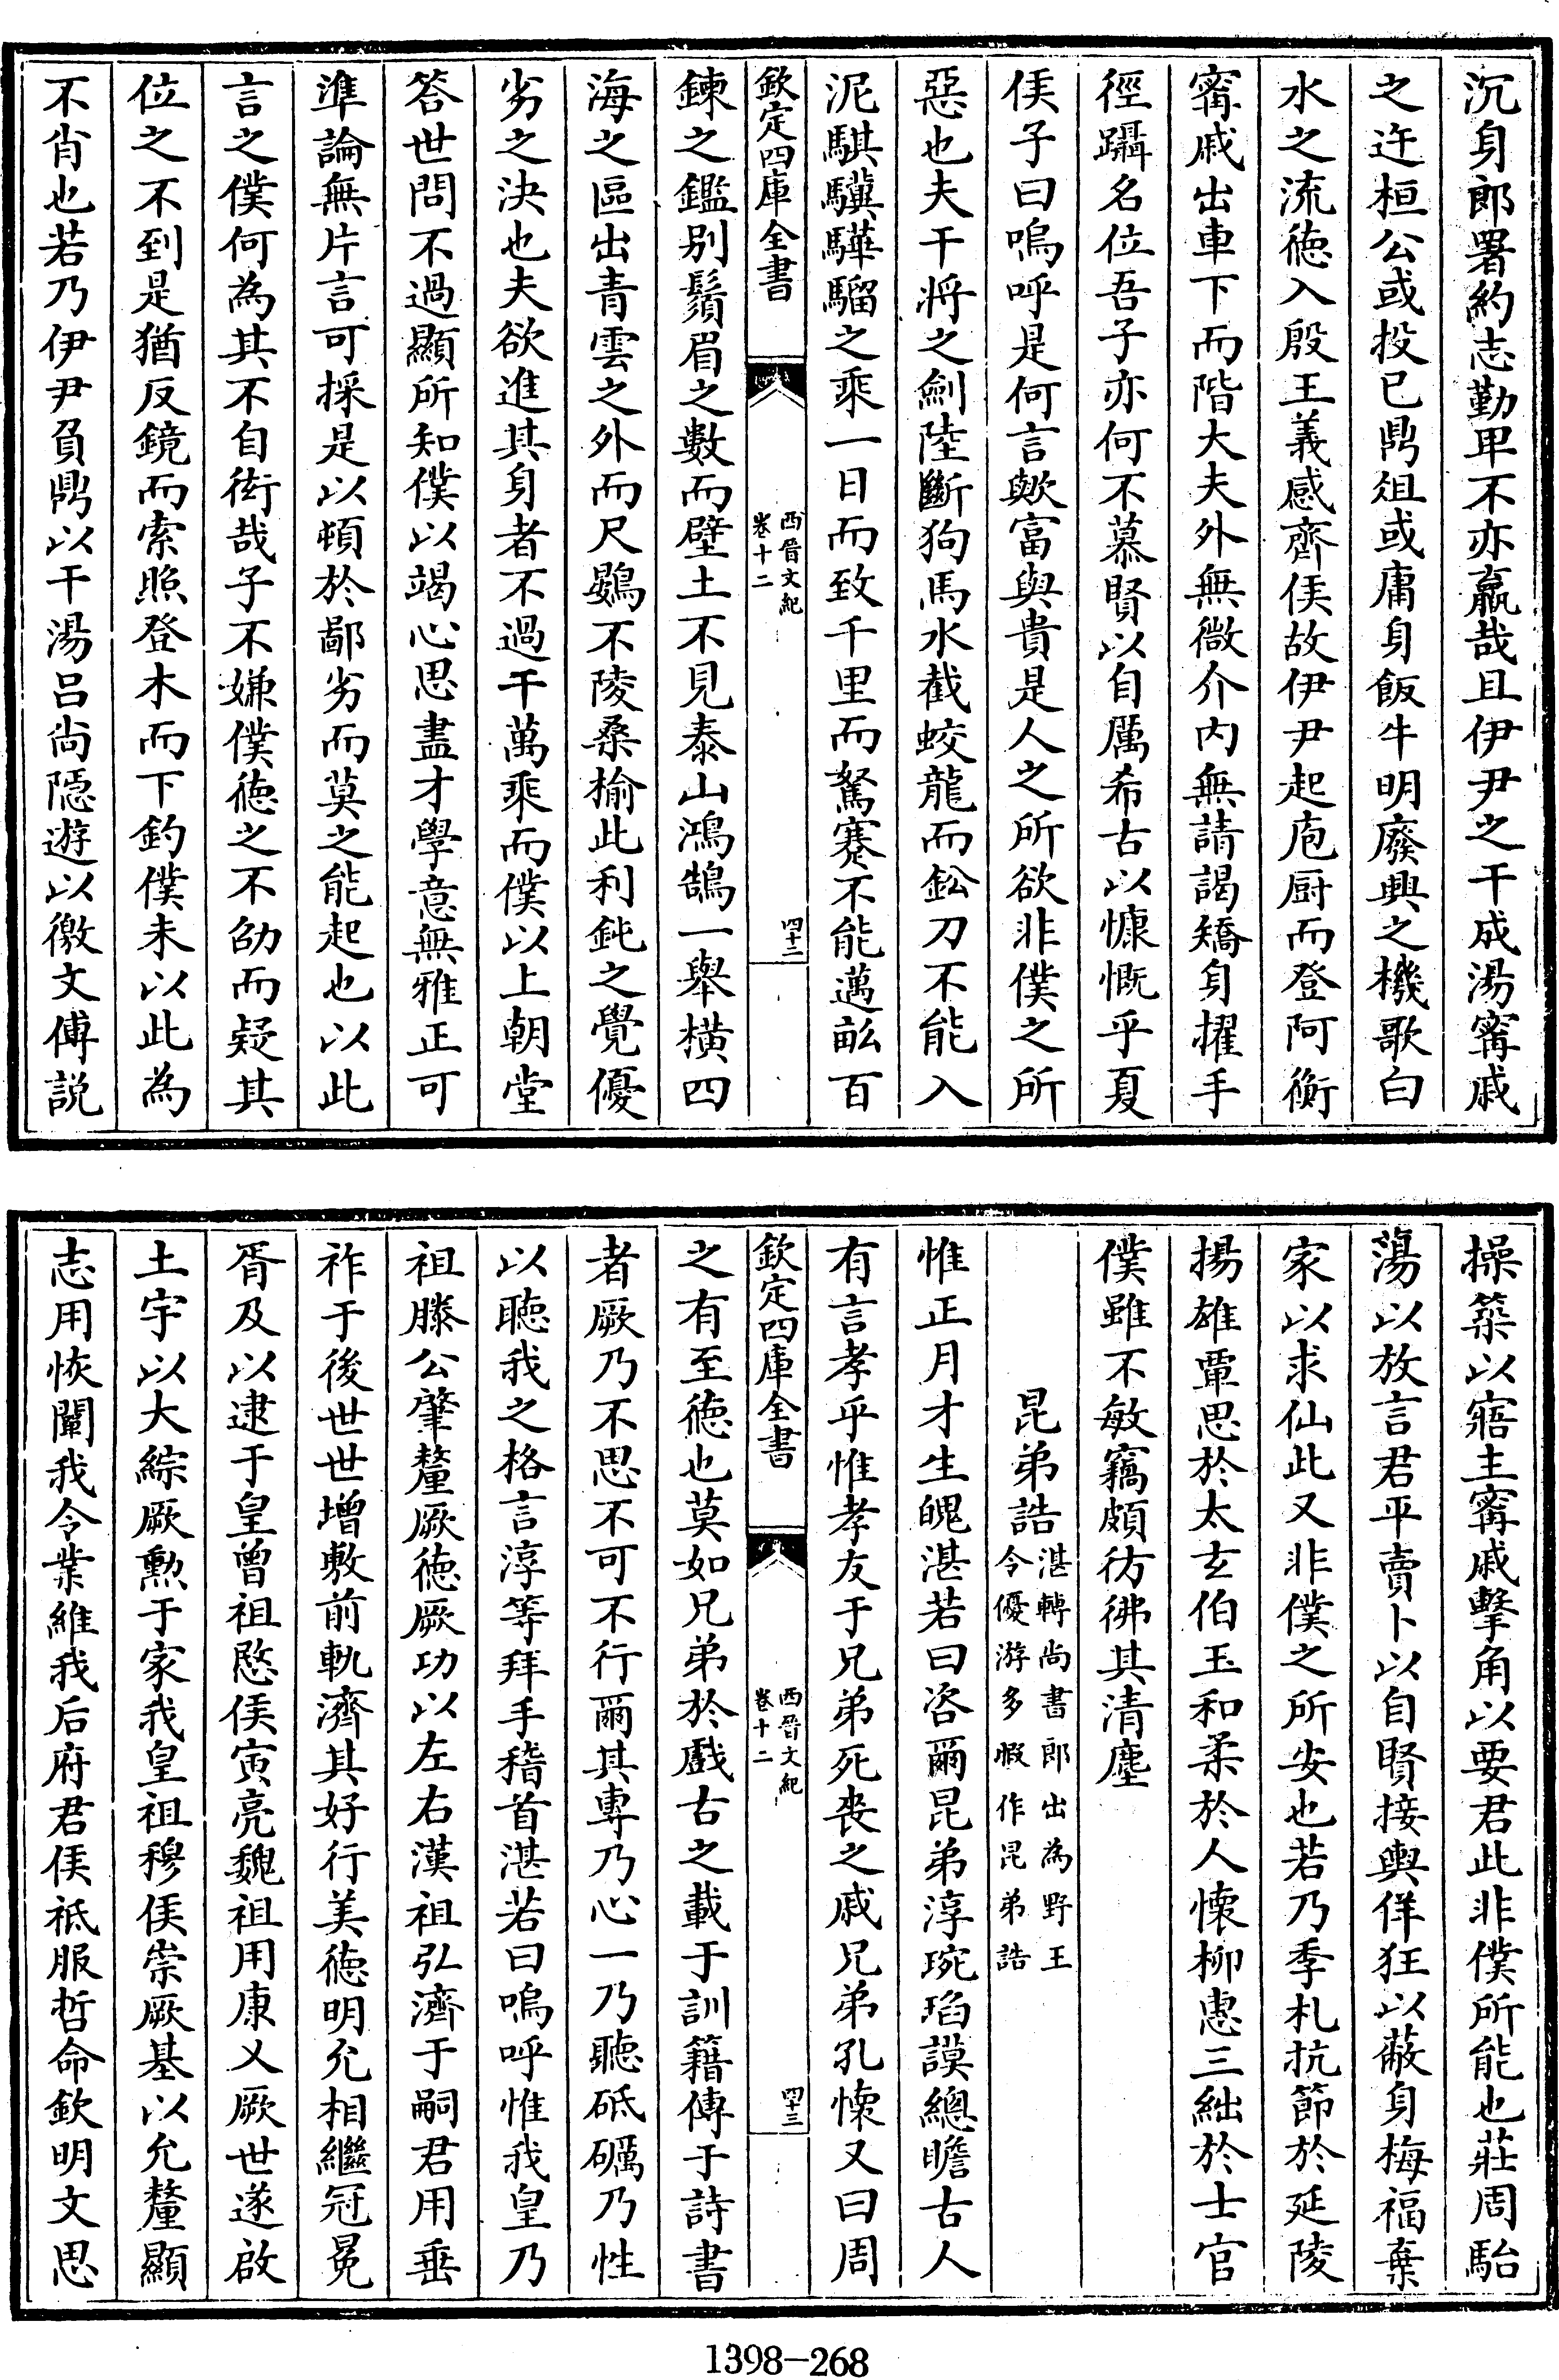 沉身郎署約志勤卑不亦羸哉且伊尹之干成湯甯戚
之迕桓公或投已鼎俎或庸身飯牛明廢興之機歌白
水之流徳入殷王義感齊侯故伊尹起庖厨而登阿衡
甯戚出車下而階大夫外無微介内無請謁矯身擢手
徑躡名位吾子亦何不慕賢以自厲希古以慷慨乎夏
侯子曰嗚呼是何言歟富與貴是人之所欲非僕之所
惡也夫干將之劒陸斷狗馬水截蛟龍而鈆刀不能入
泥騏驥驊騮之乘一日而致千里而駑蹇不能邁畝百
欽定四庫全書
西晉文紀
卷十二
四十二
鍊之鑑别鬚眉之數而壁土不見泰山鴻鵠一舉横四
海之區出青雲之外而尺鷃不陵桑榆此利鈍之覺優
劣之決也夫欲進其身者不過干萬乘而僕以上朝堂
答世問不過顯所知僕以竭心思盡才學意無雅正可
準論無片言可採是以頓於鄙劣而莫之能起也以此
言之僕何為其不自衒哉子不嫌僕徳之不劭而疑其
位之不到是猶反鏡而索照登木而下釣僕未以此為
不肖也若乃伊尹負鼎以干湯吕尚隠遊以徼文傅説
操築以寤主甯戚擊角以要君此非僕所能也莊周駘
蕩以放言君平賣卜以自賢接輿佯狂以蔽身梅福棄
家以求仙此又非僕之所安也若乃季札抗節於延陵
揚雄覃思於太𤣥伯玉和柔於人懐柳惠三絀於士官
僕雖不敏竊頗彷彿其清塵
昆弟誥
湛轉尚書郎出為野王
令優游多暇作昆弟誥
惟正月才生魄湛若曰咨爾昆弟淳琬瑫謨總瞻古人
有言孝乎惟孝友于兄弟死喪之戚兄弟孔懐又曰周
欽定四庫全書
西晉文紀
卷十二
四十三
之有至徳也莫如兄弟於戲古之載于訓籍傳于詩書
者厥乃不思不可不行爾其專乃心一乃聽砥礪乃性
以聽我之格言淳等拜手稽首湛若曰嗚呼惟我皇乃
祖滕公肇釐厥徳厥功以左右漢祖弘濟于嗣君用垂
祚于後世世增敷前軌濟其好行美徳明允相繼冠冕
胥及以逮于皇曾祖愍侯寅亮魏祖用康乂厥世遂啟
土宇以大綜厥勲于家我皇祖穆侯崇厥基以允釐顯
志用恢闡我令業維我后府君侯祗服哲命欽明文思
1398-268